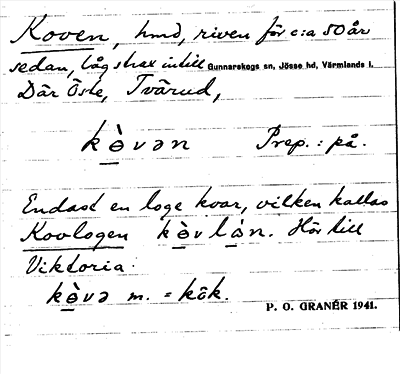 Koven, hmd, riven för c:a 50 år
sedan, låg strax intill Gunnarskogs sn, Jösse hd, Värmlands l.
Där Öste, Tvärud,
kòvən Prep.: på.
Endast en loge kvar, vilken kallas
Kovlogen kòvlàn. Hör till
Viktoria.
kòvə m. = kåk.
P. O. GRANÉR 1941.